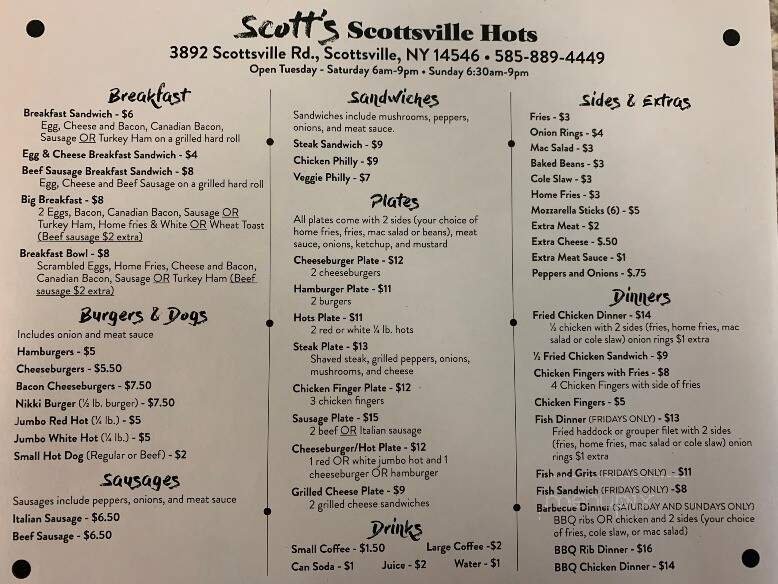 Scott's Scottsville Hots
3892 Scottsville Rd., Scottsville, NY 14546 • 585-889-4449
Open Tuesday - Saturday 6am-9pm • Sunday 6:30am-9pm
Breakfast
Breakfast Sandwich - $6
Egg, Cheese and Bacon, Canadian Bacon,
Sausage OR Turkey Ham on a grilled hard roll
Egg & Cheese Breakfast Sandwich - $4
Beef Sausage Breakfast Sandwich - $8
Egg, Cheese and Beef Sausage on a grilled hard roll
Big Breakfast - $8
2 Eggs, Bacon, Canadian Bacon, Sausage OR
Turkey Ham, Home fries & White OR Wheat Toast
(Beef sausage $2 extra)
Breakfast Bowl - $8
Scrambled Eggs, Home Fries, Cheese and Bacon,
Canadian Bacon, Sausage OR Turkey Ham (Beef
sausage $2 extra)
Burgers & Dogs
Includes onion and meat sauce
Hamburgers - $5
Cheeseburgers - $5.50
Bacon Cheeseburgers - $7.50
Nikki Burger (½ lb. burger) - $7.50
Jumbo Red Hot (¼ lb.) - $5
Jumbo White Hot (¼ lb.) - $5
Small Hot Dog (Regular or Beef) - $2
Sausages
Sausages include peppers, onions, and meat sauce
Italian Sausage - $6.50
Beef Sausage - $6.50
Sandwiches
Sandwiches include mushrooms, peppers,
onions, and meat sauce.
Steak Sandwich - $9
Chicken Philly - $9
Veggie Philly - $7
Plates
All plates come with 2 sides (your choice of
home fries, fries, mac salad or beans), meat
sauce, onions, ketchup, and mustard
Cheeseburger Plate - $12
2 cheeseburgers
Hamburger Plate - $11
2 burgers
Hots Plate - $11
2 red or white ¼ lb. hots
Steak Plate - $13
Shaved steak, grilled peppers, onions,
mushrooms, and cheese
Chicken Finger Plate - $12
3 chicken fingers
Sausage Plate - $15
2 beef OR Italian sausage
Cheeseburger/Hot Plate - $12
1 red OR white jumbo hot and 1
cheeseburger OR hamburger
Grilled Cheese Plate - $9
2 grilled cheese sandwiches
Drinks
Small Coffee - $1.50 Large Coffee -$2
Can Soda - $1 Juice - $2 Water - $1
Sides & Extras
Fries - $3
Onion Rings - $4
Mac Salad - $3
Baked Beans - $3
Cole Slaw - $3
Home Fries - $3
Mozzarella Sticks (6) - $5
Extra Meat - $2
Extra Cheese - $.50
Extra Meat Sauce - $1
Peppers and Onions - $.75
Dinners
Fried Chicken Dinner - $14
½ chicken with 2 sides (fries, home fries, mac
salad or cole slaw) onion rings $1 extra
½ Fried Chicken Sandwich - $9
Chicken Fingers with Fries - $8
4 Chicken Fingers with side of fries
Chicken Fingers - $5
Fish Dinner (FRIDAYS ONLY) - $13
Fried haddock or grouper filet with 2 sides
(fries, home fries, mac salad or cole slaw) onion
rings $1 extra
Fish and Grits (FRIDAYS ONLY) - $11
Fish Sandwich (FRIDAYS ONLY) -$8
Barbecue Dinner (SATURDAY AND SUNDAYS ONLY)
BBQ ribs OR chicken and 2 sides (your choice
of fries, cole slaw, or mac salad)
BBQ Rib Dinner - $16
BBQ Chicken Dinner - $14